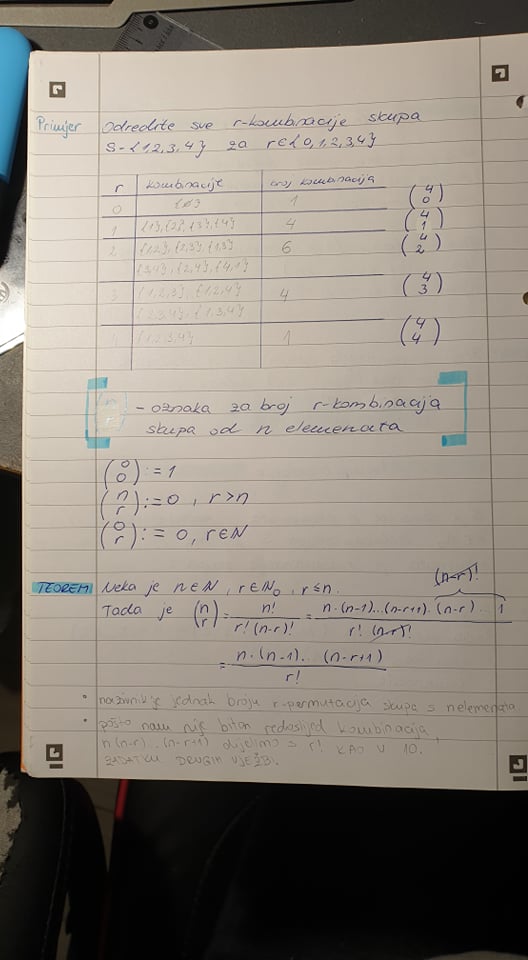 Primjer Odredite sve r-kombinacije skupa
S={1,2,3,4} za r∈{0,1,2,3,4}
r kombinacije broj kombinacija
0 {∅} 1 (4 0)
1 {1}, {2}, {3}, {4} 4 (4 1)
2 {1,2}, {2,3}, {1,3} 6 (4 2)
{3,4}, {2,4}, {4,1}
3 {1,2,3}, {1,2,4} 4 (4 3)
{2,3,4}, {1,3,4}
4 {1,2,3,4} 1 (4 4)
(n r) - oznaka za broj r-kombinacija
skupa od n elemenata
(0 0) := 1
(n r) := 0, r>n
(0 r) := 0, r∈N
TEOREM Neka je n∈N, r∈N₀, r≤n.
(n-r)!
Tada je (n r) = n! / r!(n-r)! = n·(n-1)...(n-r+1)·(n-r)...1 / r!(n-r)!
= n·(n-1)...(n-r+1) / r!
• je jednak broju r-permutacija skupa s n elemenata
• pošto nam nije bitan redoslijed kombinacija,
n(n-r)...(n-r+1) dijelimo s r! KAO U 10.
ZADATKU DRUGIH VJEŽBI.